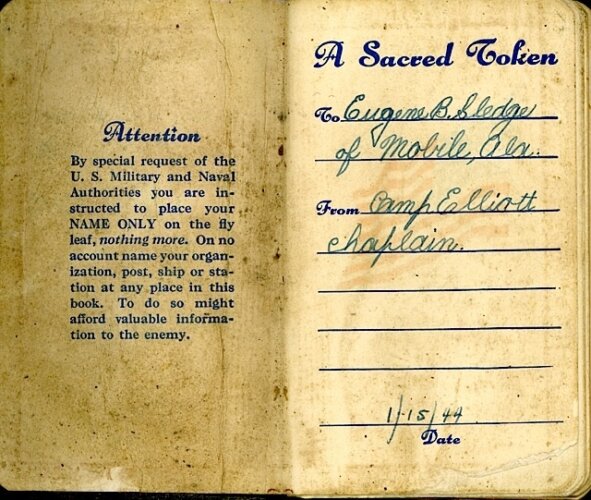 Attention
By special request of the
U. S. Military and Naval
Authorities you are in-
structed to place your
NAME ONLY on the fly
leaf, nothing more. On no
account name your organ-
ization, post, ship or sta-
tion at any place in this
book. To do so might
afford valuable informa-
tion to the enemy.
A Sacred Token
To Eugene B. Sledge
of Mobile, Ala.
From Camp Elliott
Chaplain.
1/15/44
Date